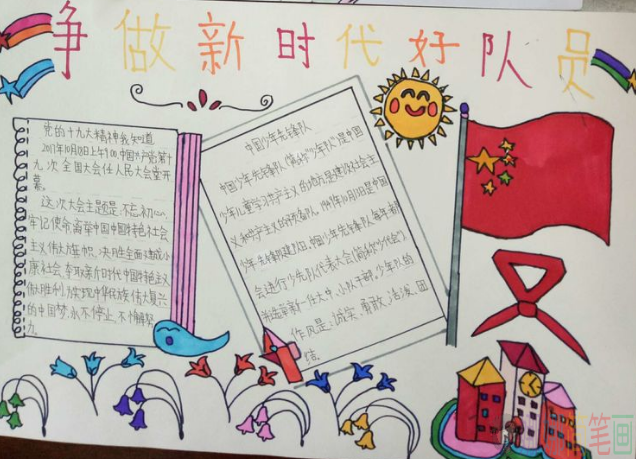 争做新时代好队员
党的十九大精神我知道
2017年10月18日上午9:00,中国共产党第十
九次全国大会在人民大会堂开
幕。
这次大会主题是:不忘初心,
牢记使命,高举中国中国特色社会
主义伟大旗帜,决胜全面建成小
康社会,夺取新时代中国特色主义
伟大胜利,为实现中华民族伟大复兴
的中国梦,永不停止,不懈努
力。
中国少年先锋队
中国少年先锋队(简称"少年队")是中国
少年儿童学习共产主义的地方,是建设社会主
义和共产主义的预备队。1949年10月13日是中国
少年先锋队建队日。中国少年先锋队每年都
会进行少先队代表大会(简称少代会),
并选举新一任大中、小队干部。少年队的
作风是:诚实、勇敢、活泼、团
结。
笔画